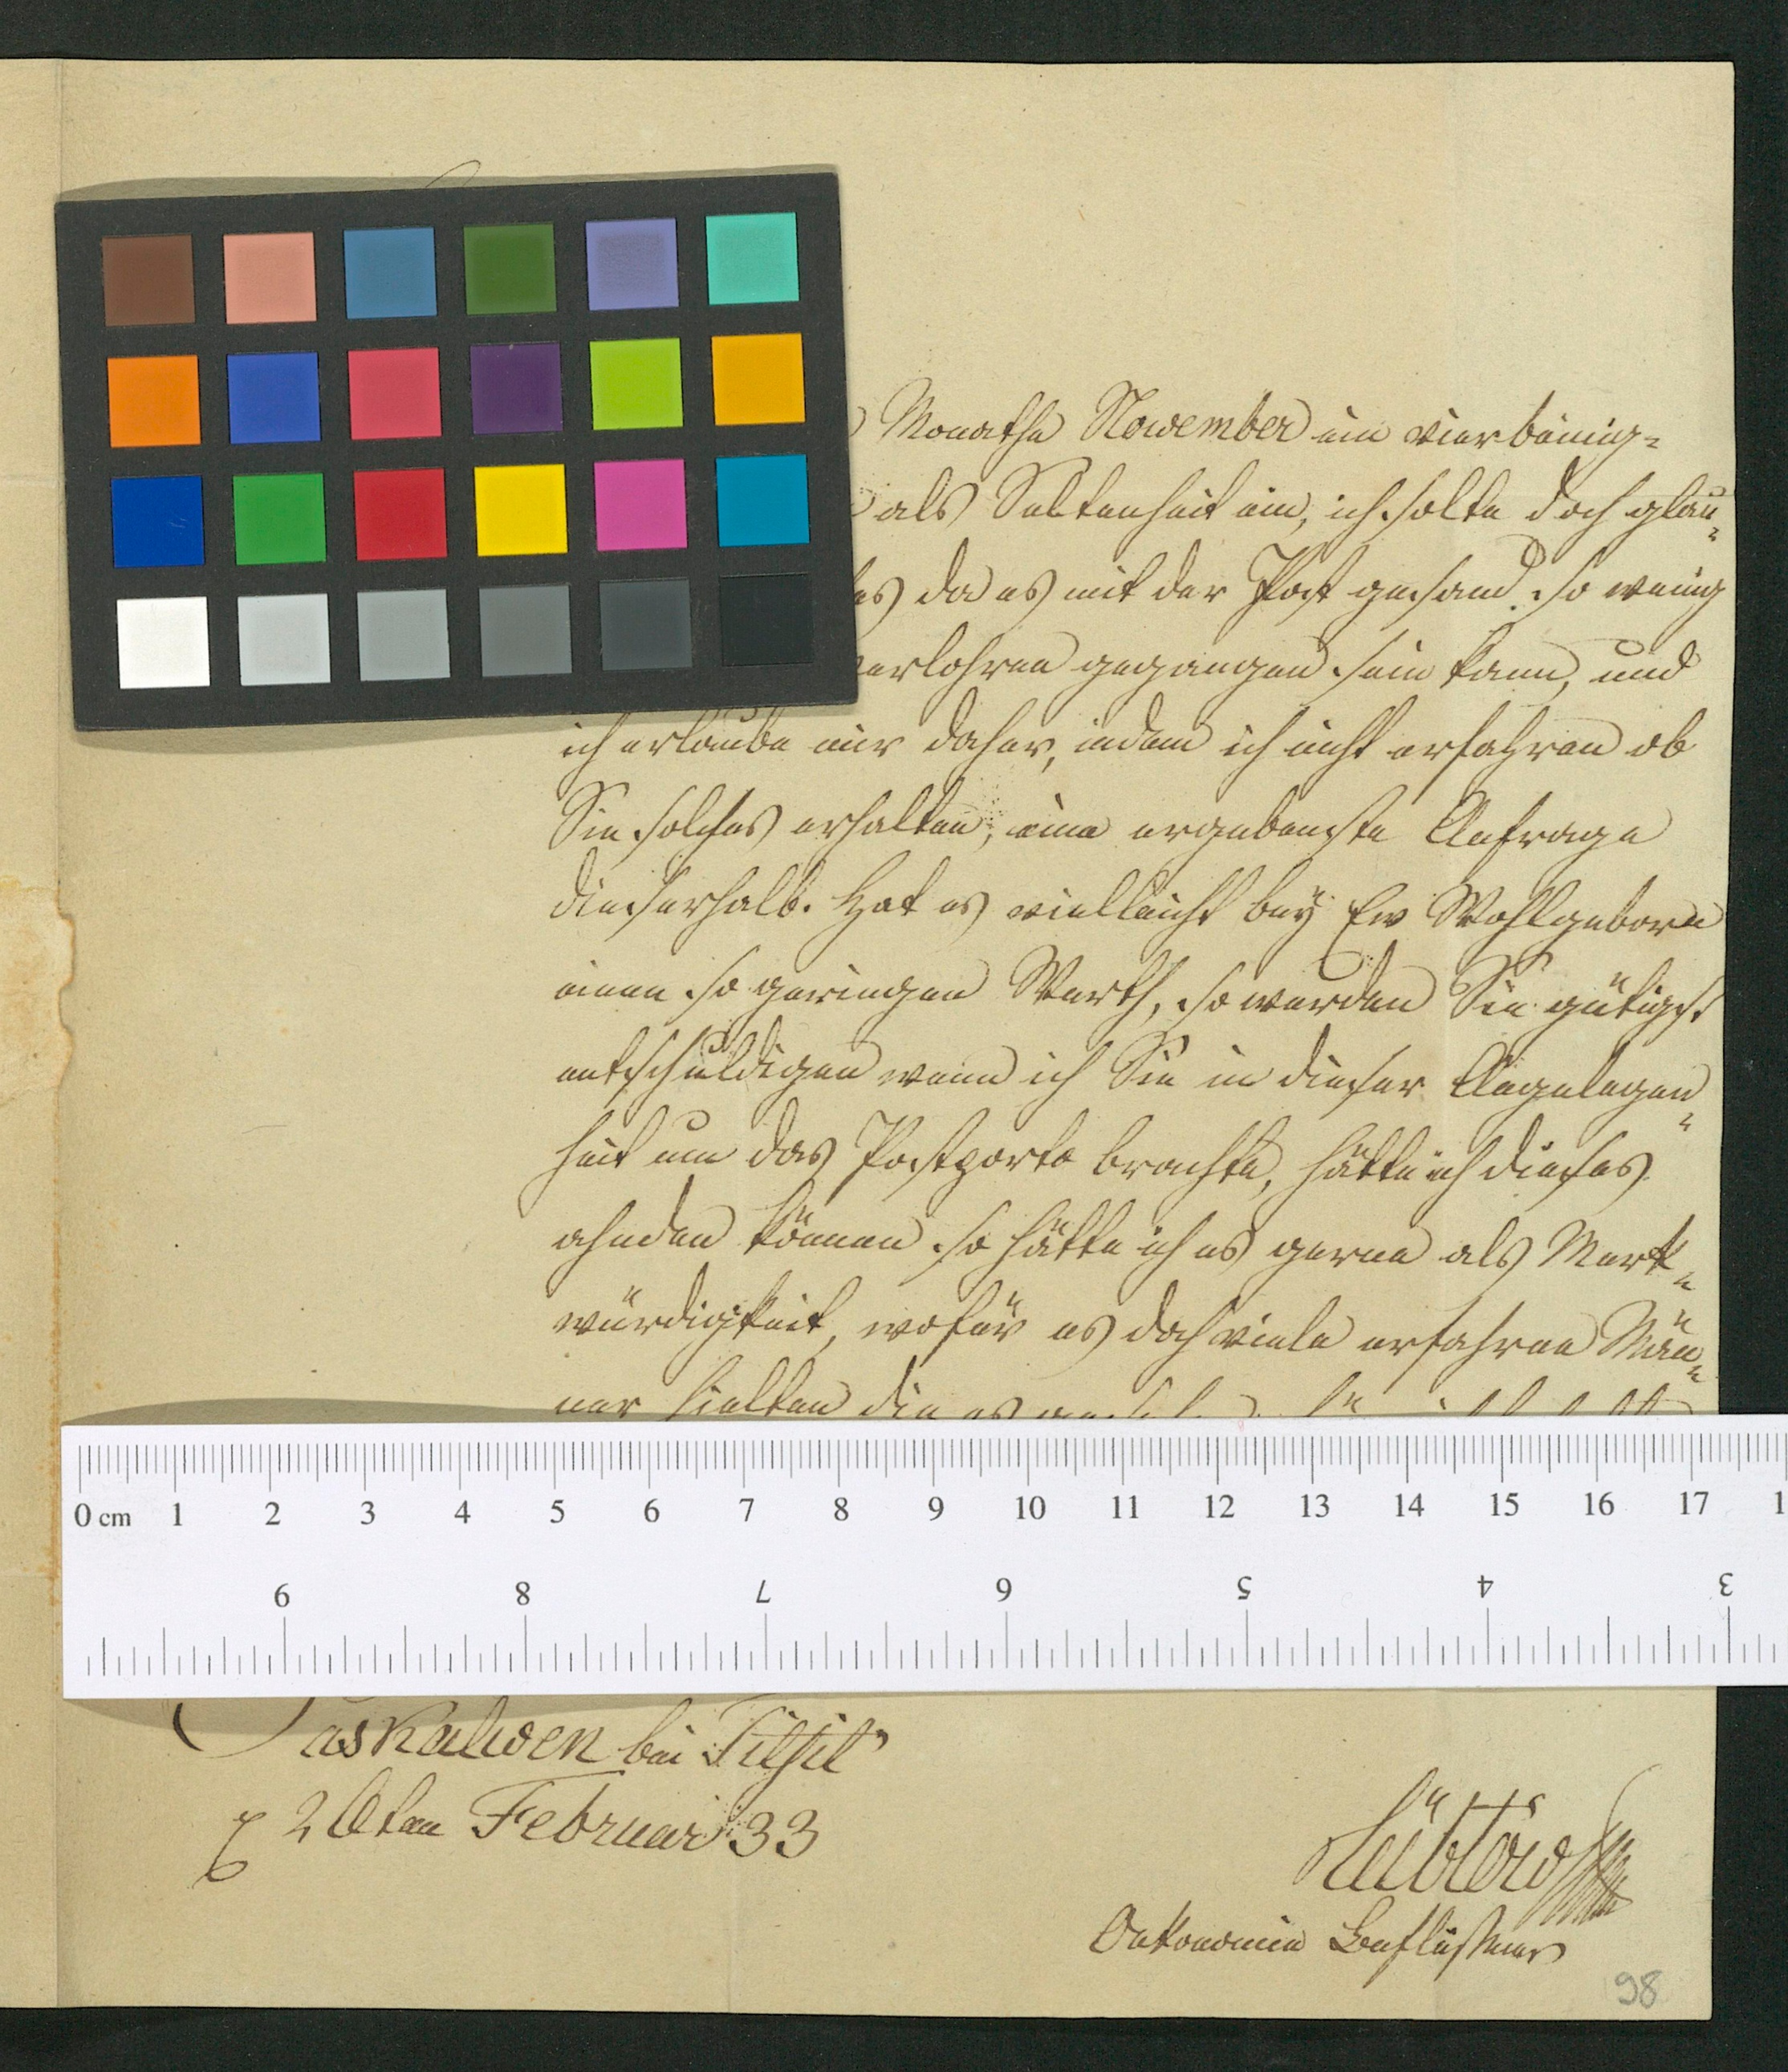 Monathe November ein vierbeinig=
als Seltenheit ein, ich solte doch glau=
es da es mit der Post gesand so wenig
verlohren gegangen sein kann, und
ich erlaube mir daher, indem ich nicht erfahren ob
Sie solches erhalten, eine ergebenste Anfrage
dieserhalb. Hat es vielleicht bey Ew Wohlgeborn
einen so geringen Werth, so werden Sie gütigst
entschuldigen wenn ich Sie in dieser Angelegen=
heit um das Postporto brachte, hätte ich dieses
ahnden können so hätte ich es gerne als Merk=
würdigkeit, wofür es doch viele erfahrne Män=
ner hielten die es
0 cm 1 2 3 4 5 6 7 8 9 10 11 12 13 14 15 16 17 1
9 8 7 6 5 4 3
Paskalwen bei Tilsit
20ten Februar 33
Lübtow
Oekonomie Beflissener
98